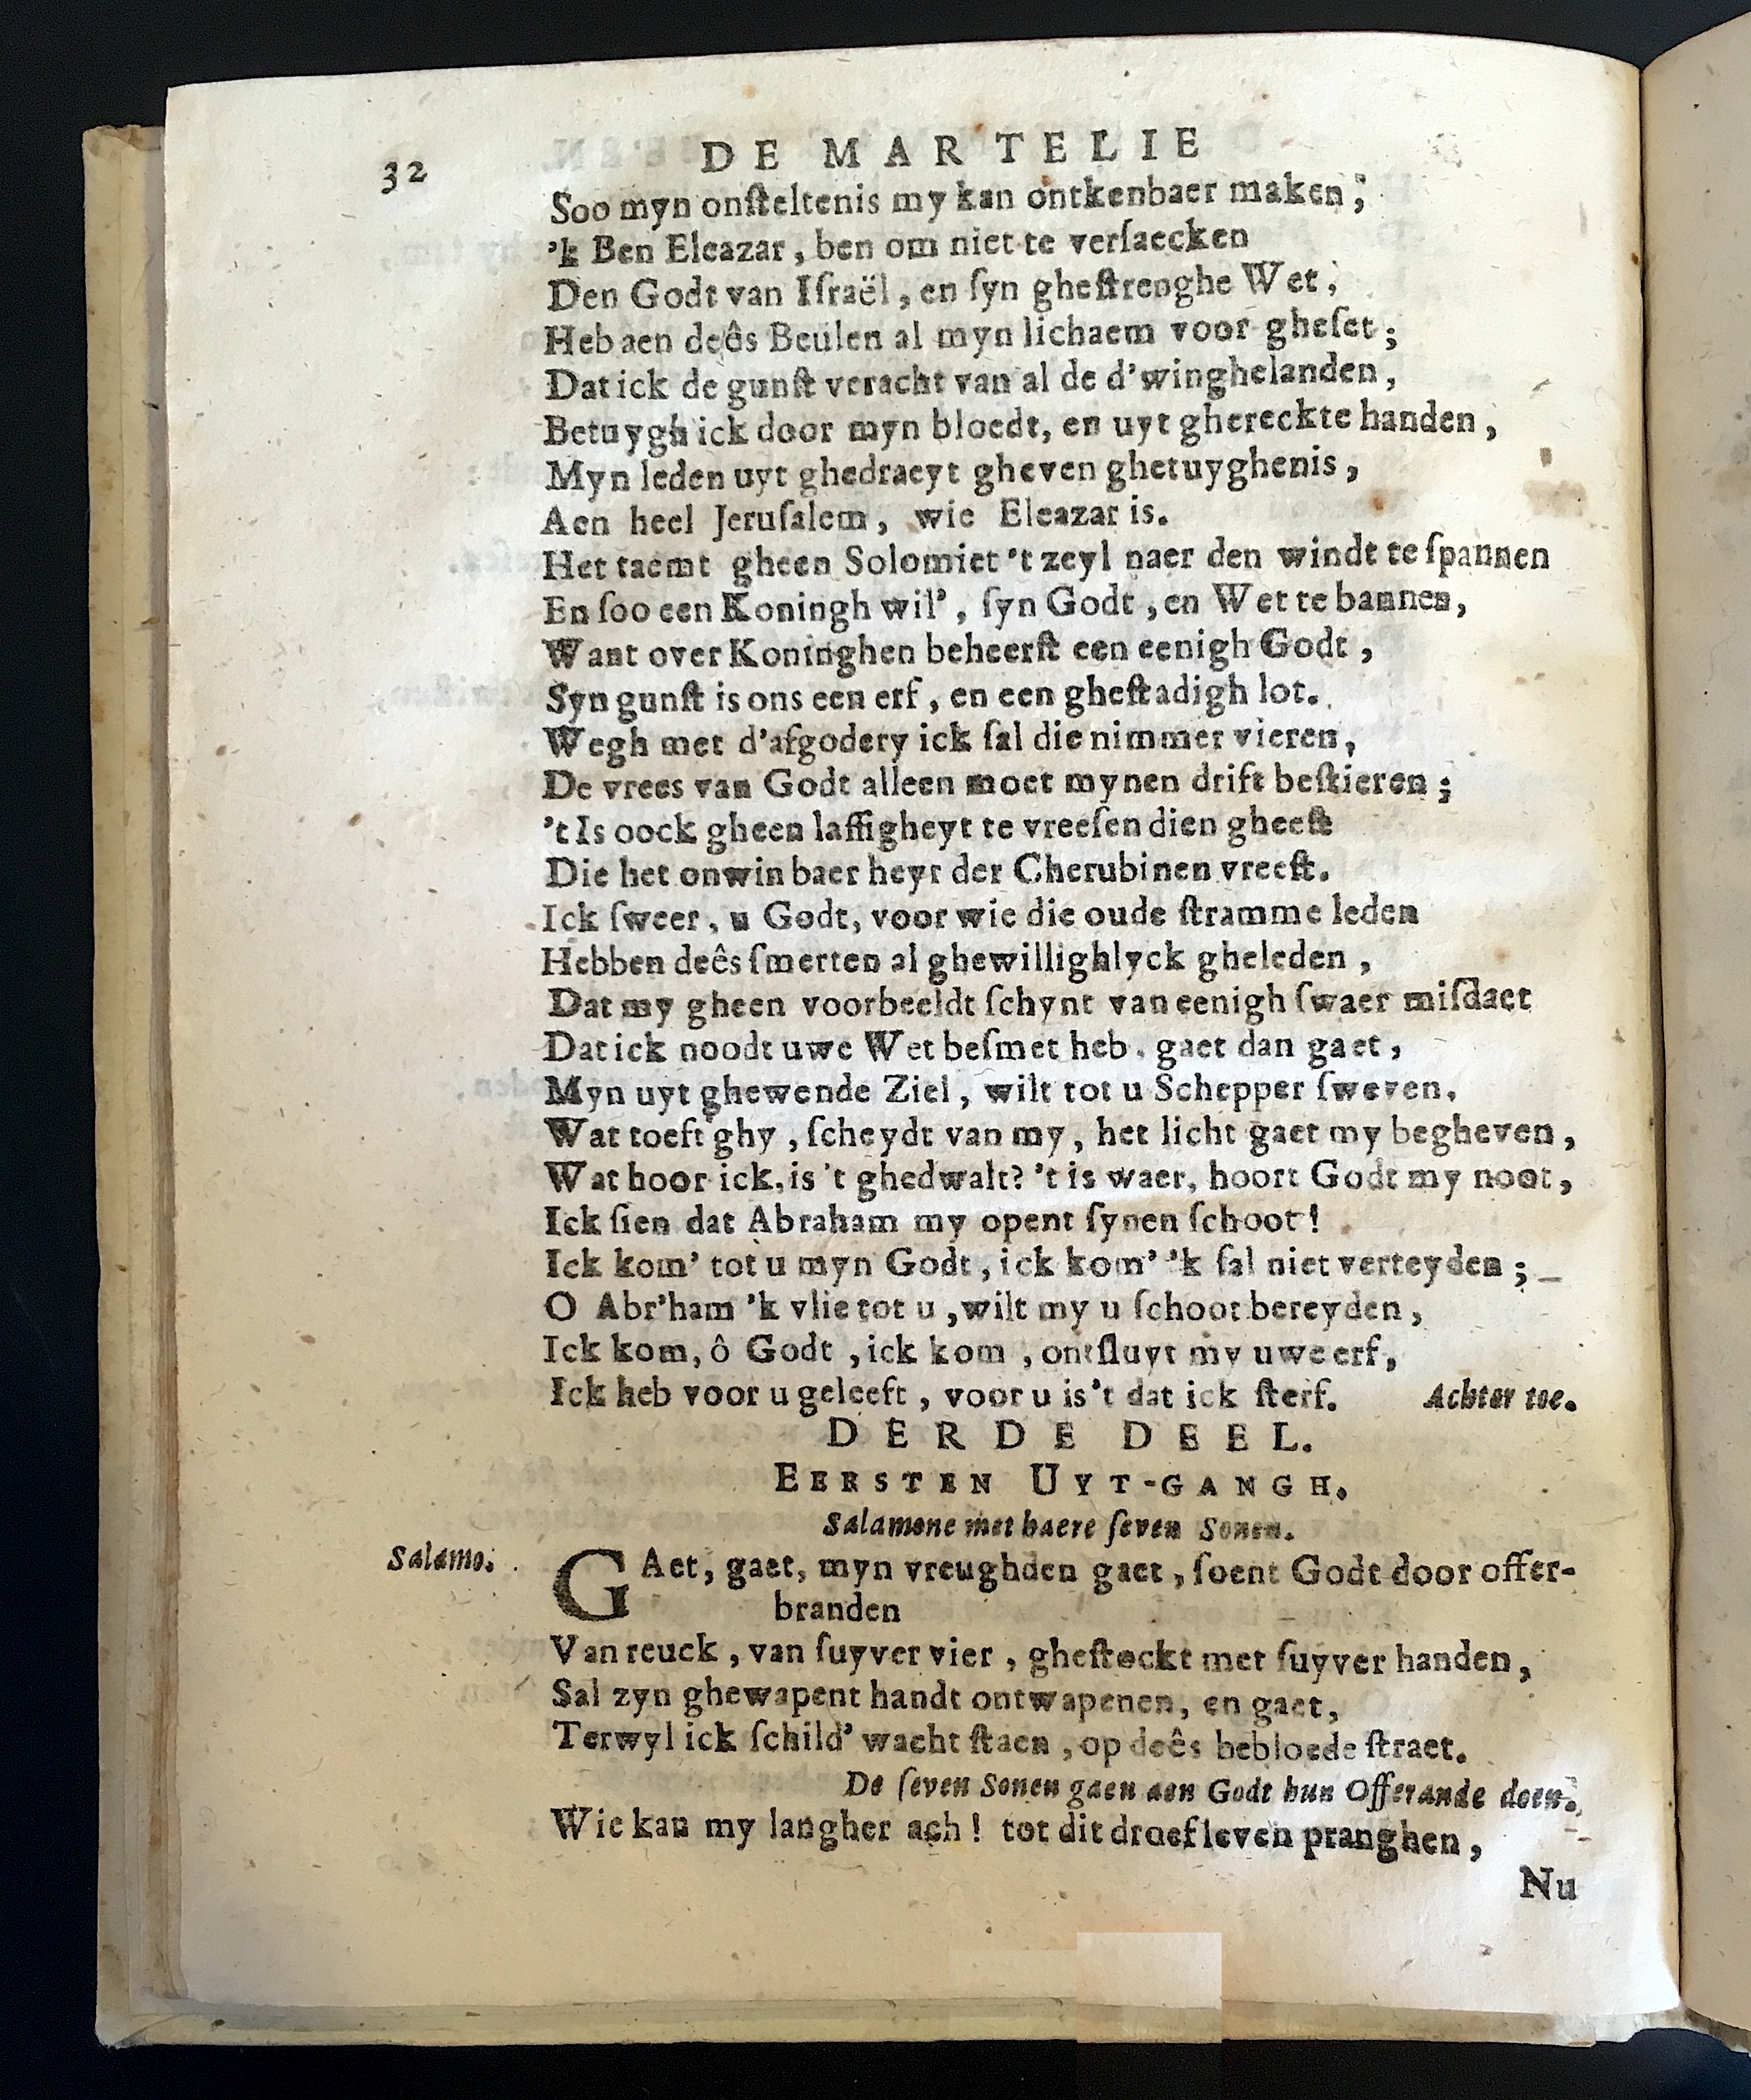 32 DE MARTELIE
Soo myn onſteltenis my kan ontkenbaer maken;
'k Ben Eleazar, ben om niet te verſaecken
Den Godt van Iſraël, en ſyn gheſtrenghe Wet,
Heb aen deês Beulen al myn lichaem voor gheſet;
Dat ick de gunſt veracht van al de d'winghelanden,
Betuygh ick door myn bloedt, en uyt ghereckte handen,
Myn leden uyt ghedraeyt gheven ghetuyghenis,
Aen heel Jeruſalem, wie Eleazar is.
Het taemt gheen Solomiet 't zeyl naer den windt te ſpannen
En ſoo een Koningh wil', ſyn Godt, en Wet te bannen,
Want over Koninghen beheerſt een eenigh Godt,
Syn gunſt is ons een erf, en een gheſtadigh lot.
Wegh met d'afgodery ick ſal die nimmer vieren,
De vrees van Godt alleen moet mynen drift beſtieren;
't Is oock gheen laffigheyt te vreeſen dien gheeſt
Die het onwinbaer heyr der Cherubinen vreeſt.
Ick ſweer, u Godt, voor wie die oude ſtramme leden
Hebben deês ſmerten al ghewillighlyck gheleden,
Dat my gheen voorbeeldt ſchynt van eenigh ſwaer miſdaet
Dat ick noodt uwe Wet beſmet heb. gaet dan gaet,
Myn uyt ghewende Ziel, wilt tot u Schepper ſweven.
Wat toeft ghy, ſcheydt van my, het licht gaet my begheven,
Wat hoor ick, is 't ghedwalt? 't is waer, hoort Godt my noot,
Ick ſien dat Abraham my opent ſynen ſchoot!
Ick kom' tot u myn Godt, ick kom' 'k ſal niet verteyden;
O Abr'ham 'k vlie tot u, wilt my u ſchoot bereyden,
Ick kom, ô Godt, ick kom, ontſluyt my uwe erf,
Ick heb voor u geleeft, voor u is 't dat ick ſterf. Achter toe.
DERDE DEEL.
EERSTEN UYT-GANGH.
Salamone met haere ſeven Sonen.
Salamo. GAet, gaet, myn vreughden gaet, ſoent Godt door offer-
branden
Van reuck, van ſuyver vier, gheſtockt met ſuyver handen,
Sal zyn ghewapent handt ontwapenen, en gaet,
Terwyl ick ſchild' wacht ſtaen, op deês bebloede ſtraet.
De ſeven Sonen gaen aen Godt hun Offerande doen.
Wie kan my langher ach! tot dit droef leven pranghen,
Nu